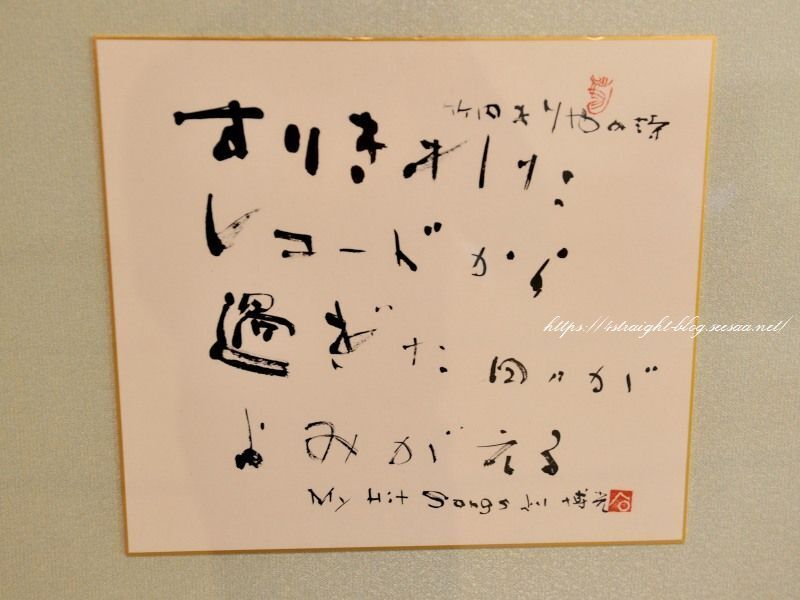 竹内まりやの詩
すりきれた
レコードから
過ぎた日々が
よみがえる
My Hit Songs 博光
https://4straight-blog.seesaa.net/